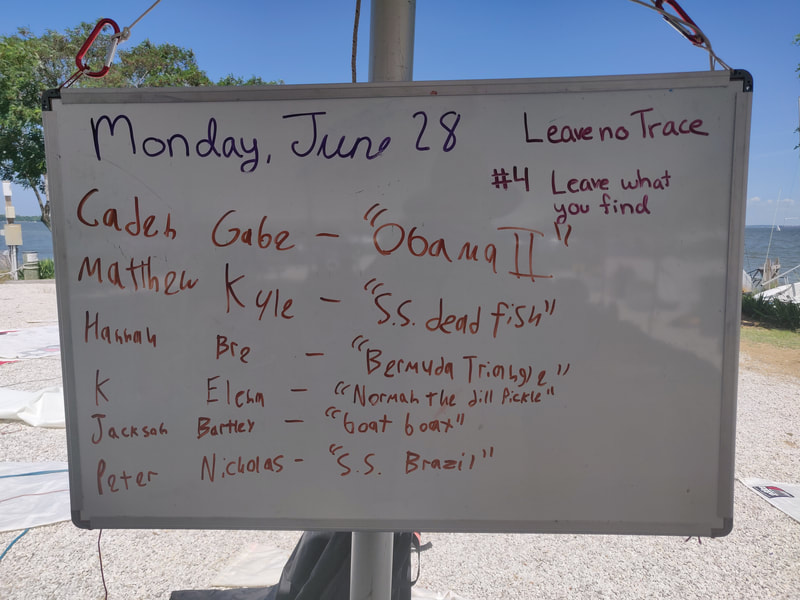 Monday, June 28
Leave no Trace
#4 Leave what
you find
Caden Gabe - "Obama II"
Matthew Kyle - "S.S. dead fish"
Hannah Bre - "Bermuda Triangle"
K Elena - "Norman the dill Pickle"
Jackson Bartley - "goat boat"
Peter Nicholas - "S.S. Brazil"